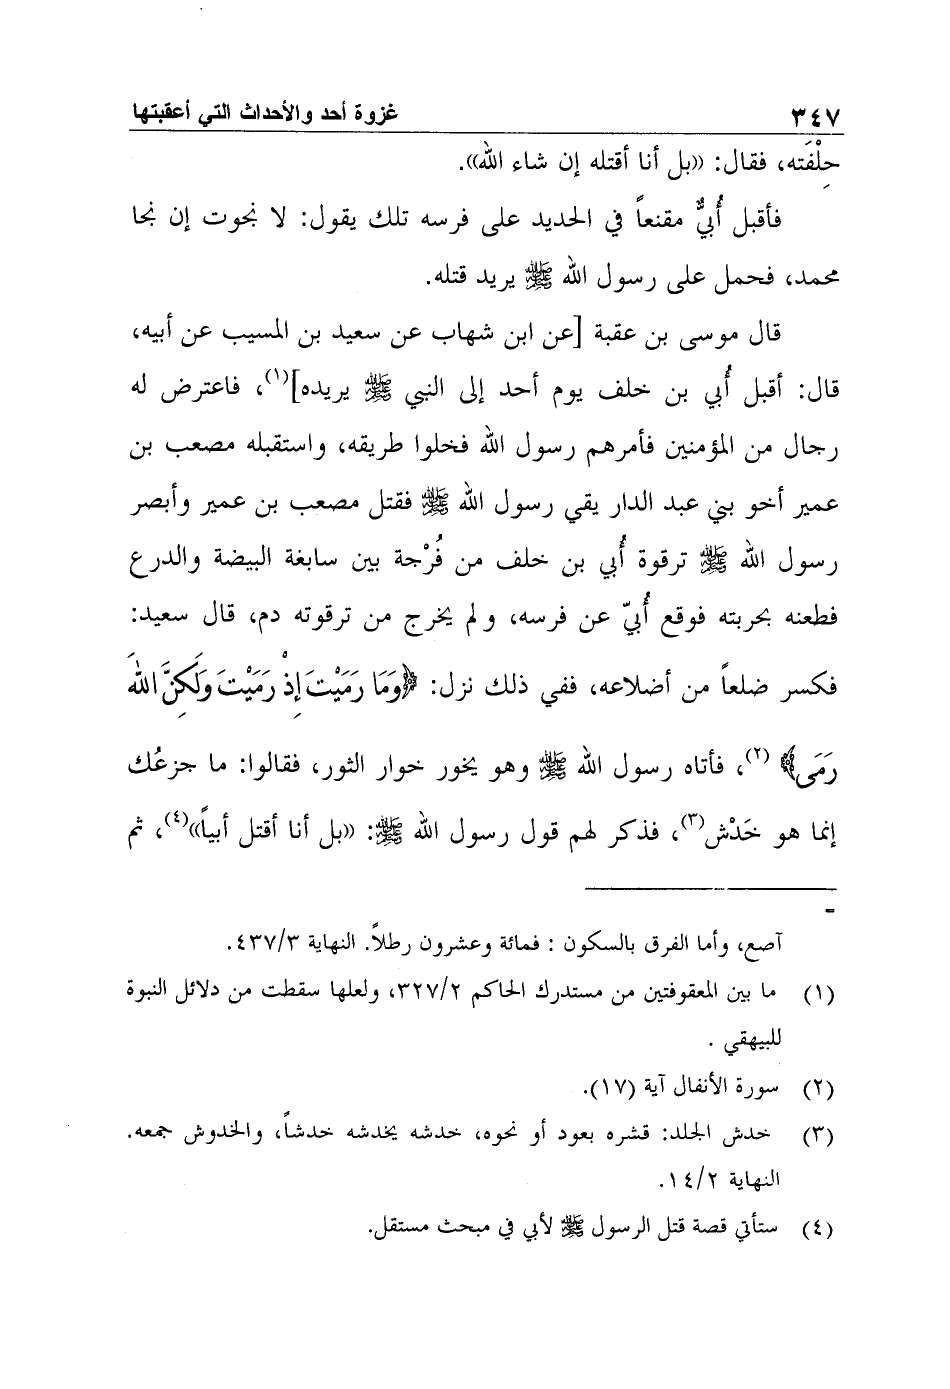 ٣٤٧ غزوة أحد والأحداث التي أعقبتها
حِلْفَته، فقال: «بل أنا أقتله إن شاء الله».
فأقبل أُبيٌّ مقنعاً في الحديد على فرسه تلك يقول: لا نجوت إن نجا
محمد، فحمل على رسول الله ﷺ يريد قتله.
قال موسى بن عقبة [عن ابن شهاب عن سعيد بن المسيب عن أبيه،
قال: أقبل أُبي بن خلف يوم أحد إلى النبي ﷺ يريده](١)، فاعترض له
رجال من المؤمنين فأمرهم رسول الله فخلوا طريقه، واستقبله مصعب بن
عمير أخو بني عبد الدار يقي رسول الله ﷺ فقتل مصعب بن عمير وأبصر
رسول الله ﷺ ترقوة أُبي بن خلف من فُرْجة بين سابغة البيضة والدرع
فطعنه بحربته فوقع أُبيّ عن فرسه، ولم يخرج من ترقوته دم، قال سعيد:
فكسر ضلعاً من أضلاعه، ففي ذلك نزل: ﴿وَمَا رَمَيْتَ إِذْ رَمَيْتَ وَلَكِنَّ اللهَ
رَمَى﴾ (٢)، فأتاه رسول الله ﷺ وهو يخور خوار الثور، فقالوا: ما جزعُك
إنما هو خَدْش(٣)، فذكر لهم قول رسول الله ﷺ: «بل أنا أقتل أبياً»(٤)، ثم
=
آصع، وأما الفرق بالسكون : فمائة وعشرون رطلاً. النهاية ٤٣٧/٣.
(١) ما بين المعقوفتين من مستدرك الحاكم ٣٢٧/٢، ولعلها سقطت من دلائل النبوة
للبيهقي .
(٢) سورة الأنفال آية (١٧).
(٣) خدش الجلد: قشره بعود أو نحوه، خدشه يخدشه خدشاً، والخدوش جمعه.
النهاية ١٤/٢.
(٤) ستأتي قصة قتل الرسول ﷺ لأبي في مبحث مستقل.